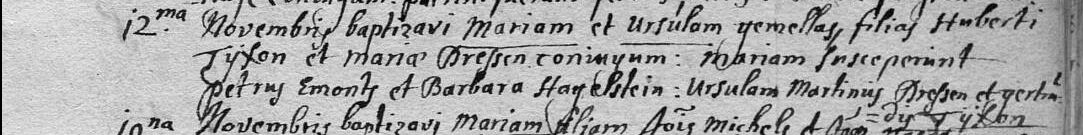 12.ma Novembris baptizavi Mariam et Ursulam gemellas, filias Huberti
Tÿxon et mariæ Dressen coniugum: mariam susceperunt
Petrus Emonts et Barbara Hagelstein: Ursulam Martinus Dressen et gertru=
dis Tÿxon
19na Novembris baptizavi Mariam filiam Jois Michels et